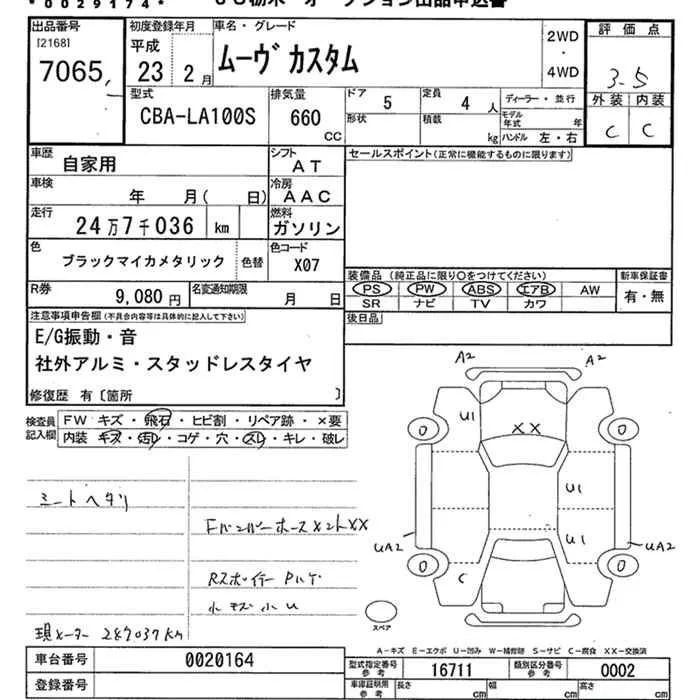 *0029174*
出品番号
[2168]
7065
初度登録年月
平成
23 2月
車名・グレード
ムーヴ カスタム
2WD
・
4WD
評価点
3.5
外装 内装
C C
型式
CBA-LA100S
排気量
660
CC
ドア 5
定員 4 人
ディーラー・並行
形状
積載 kg
モデル年式 年
ハンドル 左・右
車歴
自家用
シフト
AT
車検
年 月( 日)
冷房
AAC
走行
24万7千036 km
燃料
ガソリン
色
ブラックマイカメタリック
色替
色コード
X07
R券
9,080円
名変通知期限
月 日
セールスポイント(正常に機能するものに限ります)
装備品 (純正品に限り○をつけてください)
新車保証書
PS PW ABS エアB AW
SR ナビ TV カワ
有・無
後日品
注意事項申告欄(不具合内容等は具体的に記入して下さい)
E/G振動・音
社外アルミ・スタッドレスタイヤ
修復歴 有〔箇所 〕
検査員
記入欄
FW キズ・飛石・ヒビ割・リペア跡・×要
内装 キズ・汚レ・コゲ・穴・スレ・キレ・破レ
シートヘタリ
XX
Rスポイラー
現メーター 247037Km
A2 A2
U1
XX
U1
U1
UA2
UA2
C
0
0
0
0
スペア
A-キズ E-エクボ U-凹み W-補修跡 S-サビ C-腐食 XX-交換済
車台番号
0020164
登録番号
型式指定番号
参考
16711
類別区分番号
参考
0002
車庫証明用
参考
長さ cm
幅 cm
高さ cm